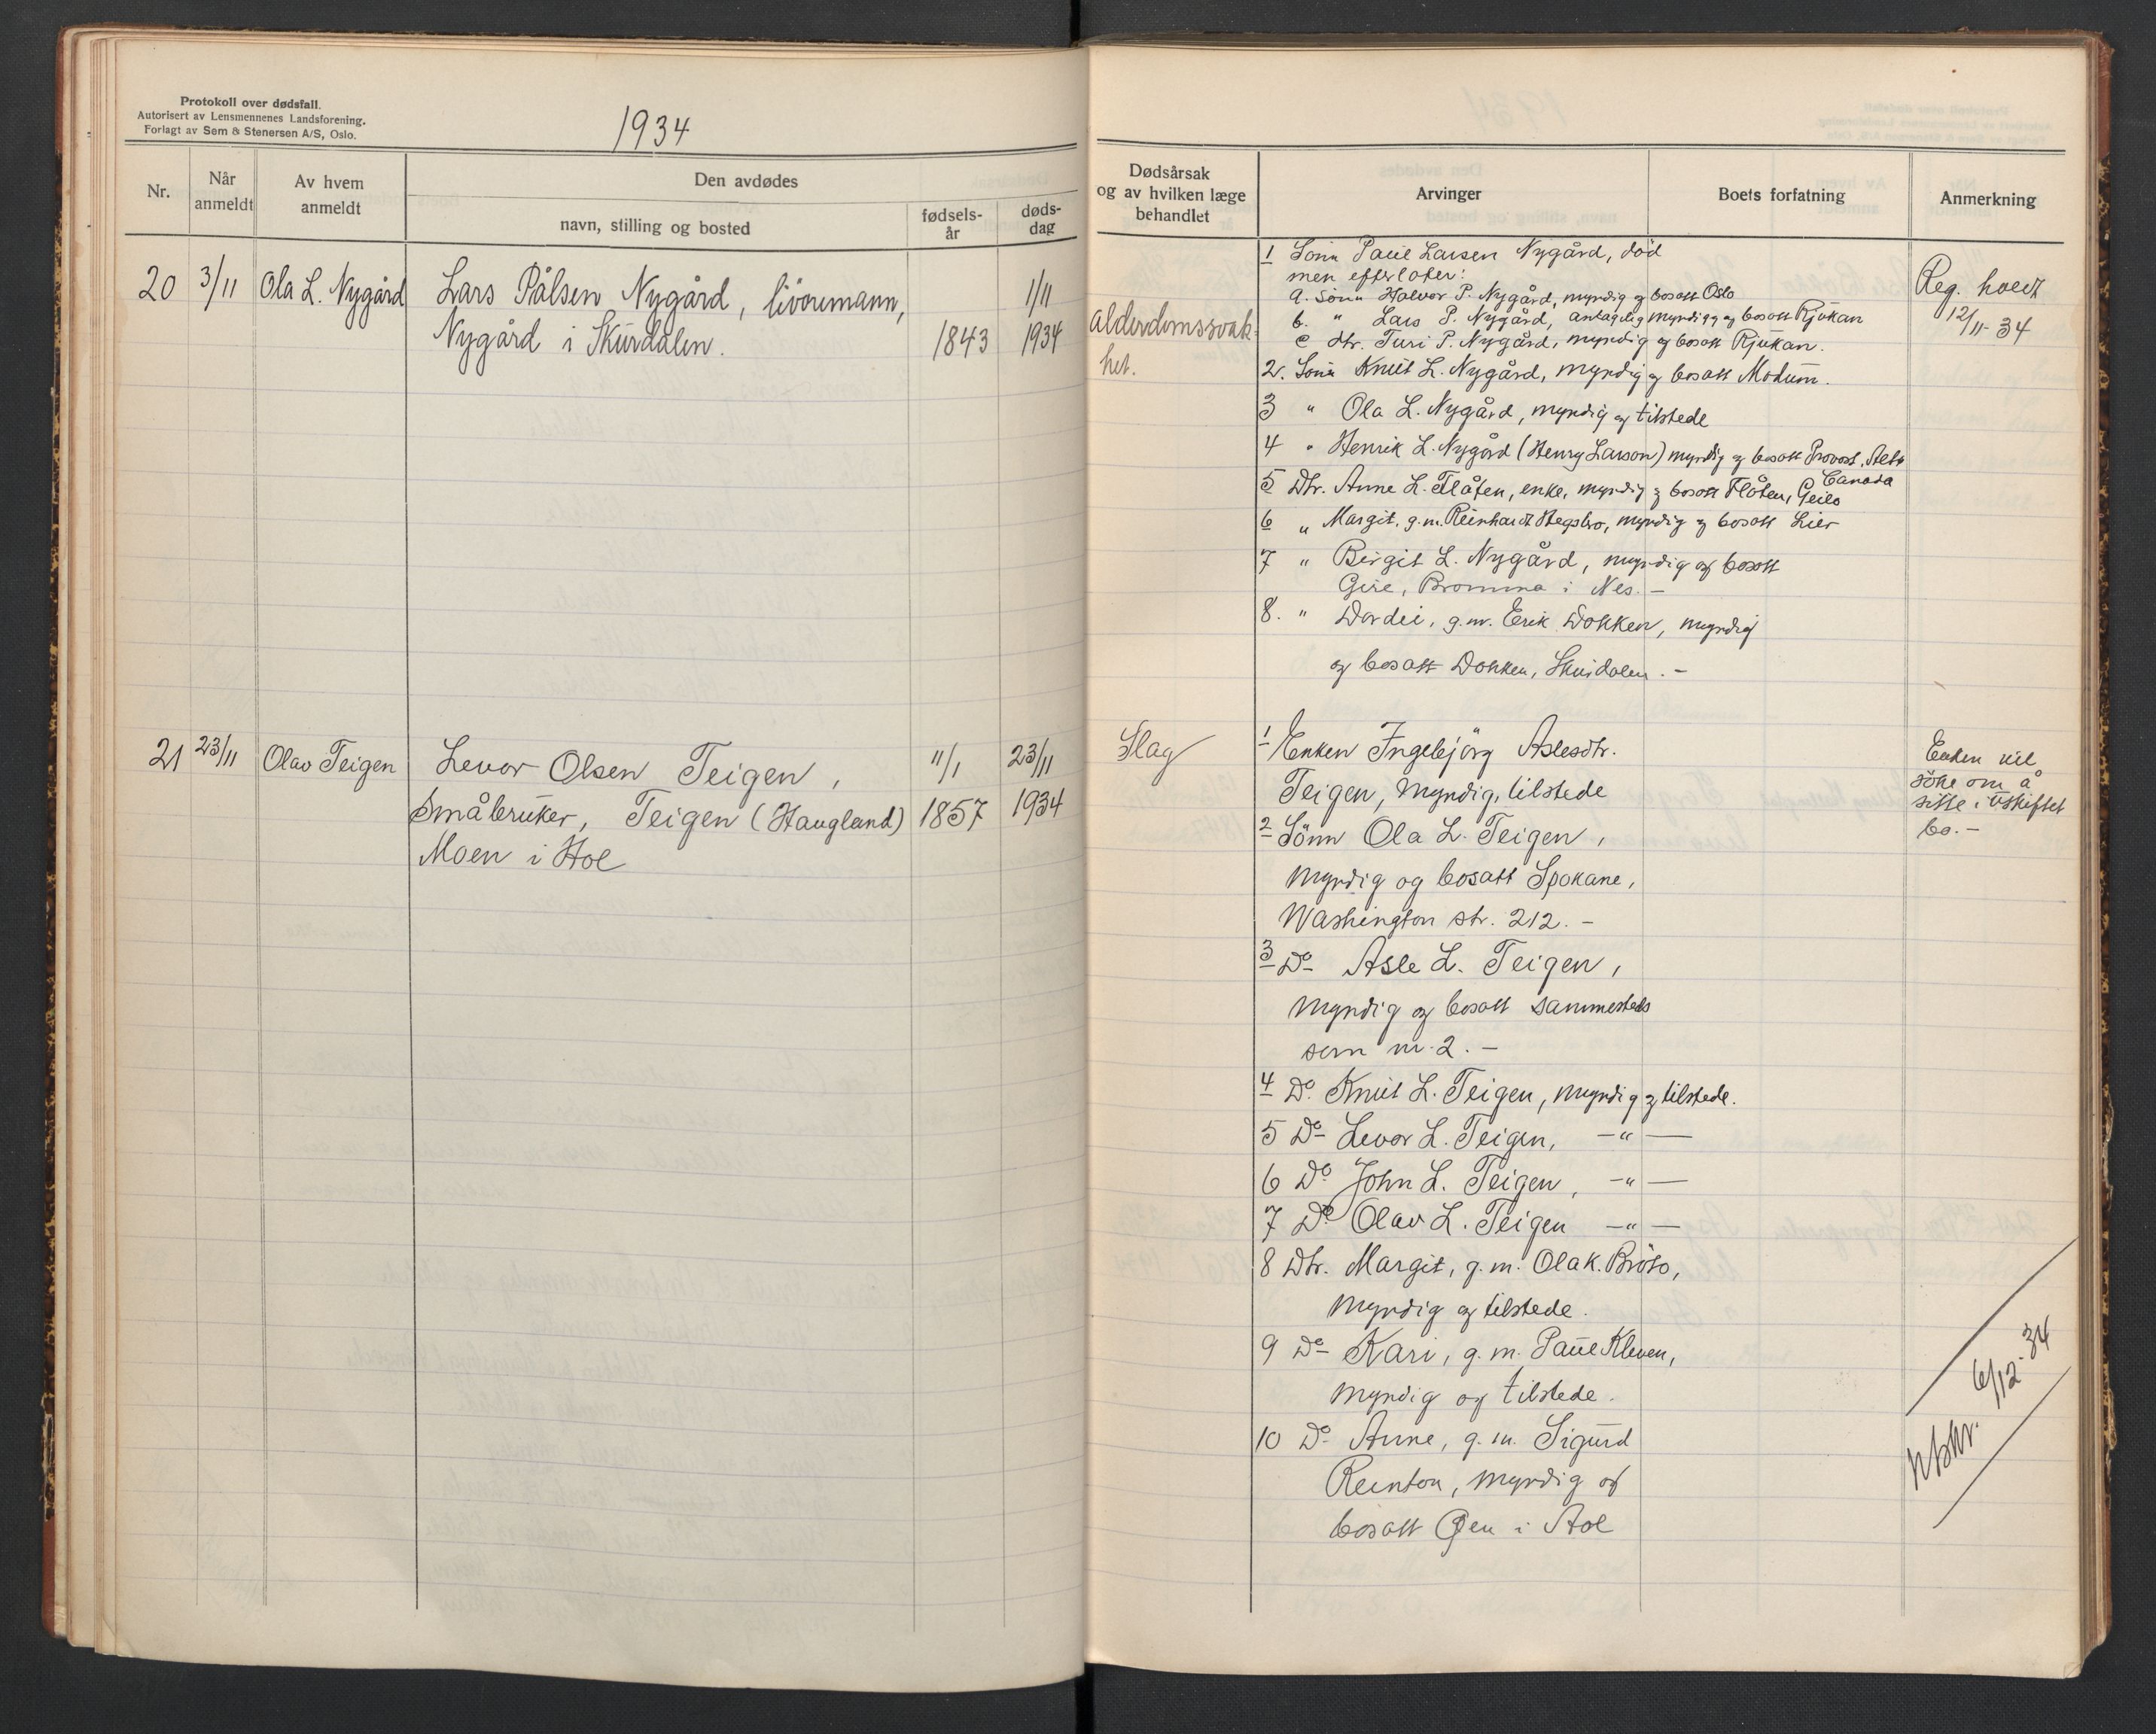 Protokoll over dødsfall.
Autorisert av Lensmennenes Landsforening.
Forlagt av Sem & Stenersen A/S, Oslo.
1934
Nr.
Når
anmeldt
Av hvem
anmeldt
Den avdødes
navn, stilling og bosted
fødsels-
år
døds-
dag
Dødsårsak
og av hvilken læge
behandlet
Arvinger
Boets forfatning
Anmerkning
20 3/11 Ola L. Nygård Lars Pålsen Nygård, livöremann, 1/11
Nygård i Skurdalen. 1843 1934
alderdomssvak-
het.
1 Sönn Paul Larsen Nygård, död
men efterlater:
a. Sönn Halvor P. Nygård, myndig og bosatt Oslo
b. " Lars P. Nygård, antagelig myndig og bosatt Rjukan
c dtr. Turi P. Nygård, myndig og bosatt Rjukan.
2. Sönn Knut L. Nygård, myndig og bosatt Modum.
3 " Ola L. Nygård, myndig og tilstede
4 " Henrik L. Nygård (Henry Larson) myndig og bosatt Provost, Alta
Canada
5 Dtr. Anne L. Flåten, enke, myndig og bosatt Flåten, Geilo
6 " Margit, g.m. Reinhardt Hegsbro, myndig og bosatt Lier
7 " Birgit L. Nygård, myndig og bosatt
Gire, Bromma i Nes. -
8. " Dordei, g.m. Erik Dokken, myndig
og bosatt Dokken, Skurdalen. -
Reg. holdt
12/11-34
21 23/11 Olav Teigen Levor Olsen Teigen, 11/1 23/11
Småbruker, Teigen (Haugland) 1857 1934
Moen i Hol
Slag
1 Enken Ingebjörg Aslesdtr.
Teigen, myndig, tilstede
2 Sönn Ola L. Teigen,
myndig og bosatt Spokane,
Washington str. 212. -
3 Do Asle L. Teigen,
myndig og bosatt sammesteds
som nr. 2. -
4 Do Knut L. Teigen, myndig og tilstede.
5 Do Levor L. Teigen, -"-
6 Do John L. Teigen, -"-
7 Do Olav L. Teigen -"-
8 Dtr. Margit, g.m. Ola K. Bröto,
myndig og tilstede.
9 Do Kari, g.m. Paul Kleven,
myndig og tilstede.
10 Do Anne, g.m. Sigurd
Reinton, myndig og
bosatt Øen i Hol
Enken vil
söke om å
sitte i uskiftet
bo. -
6/12-34